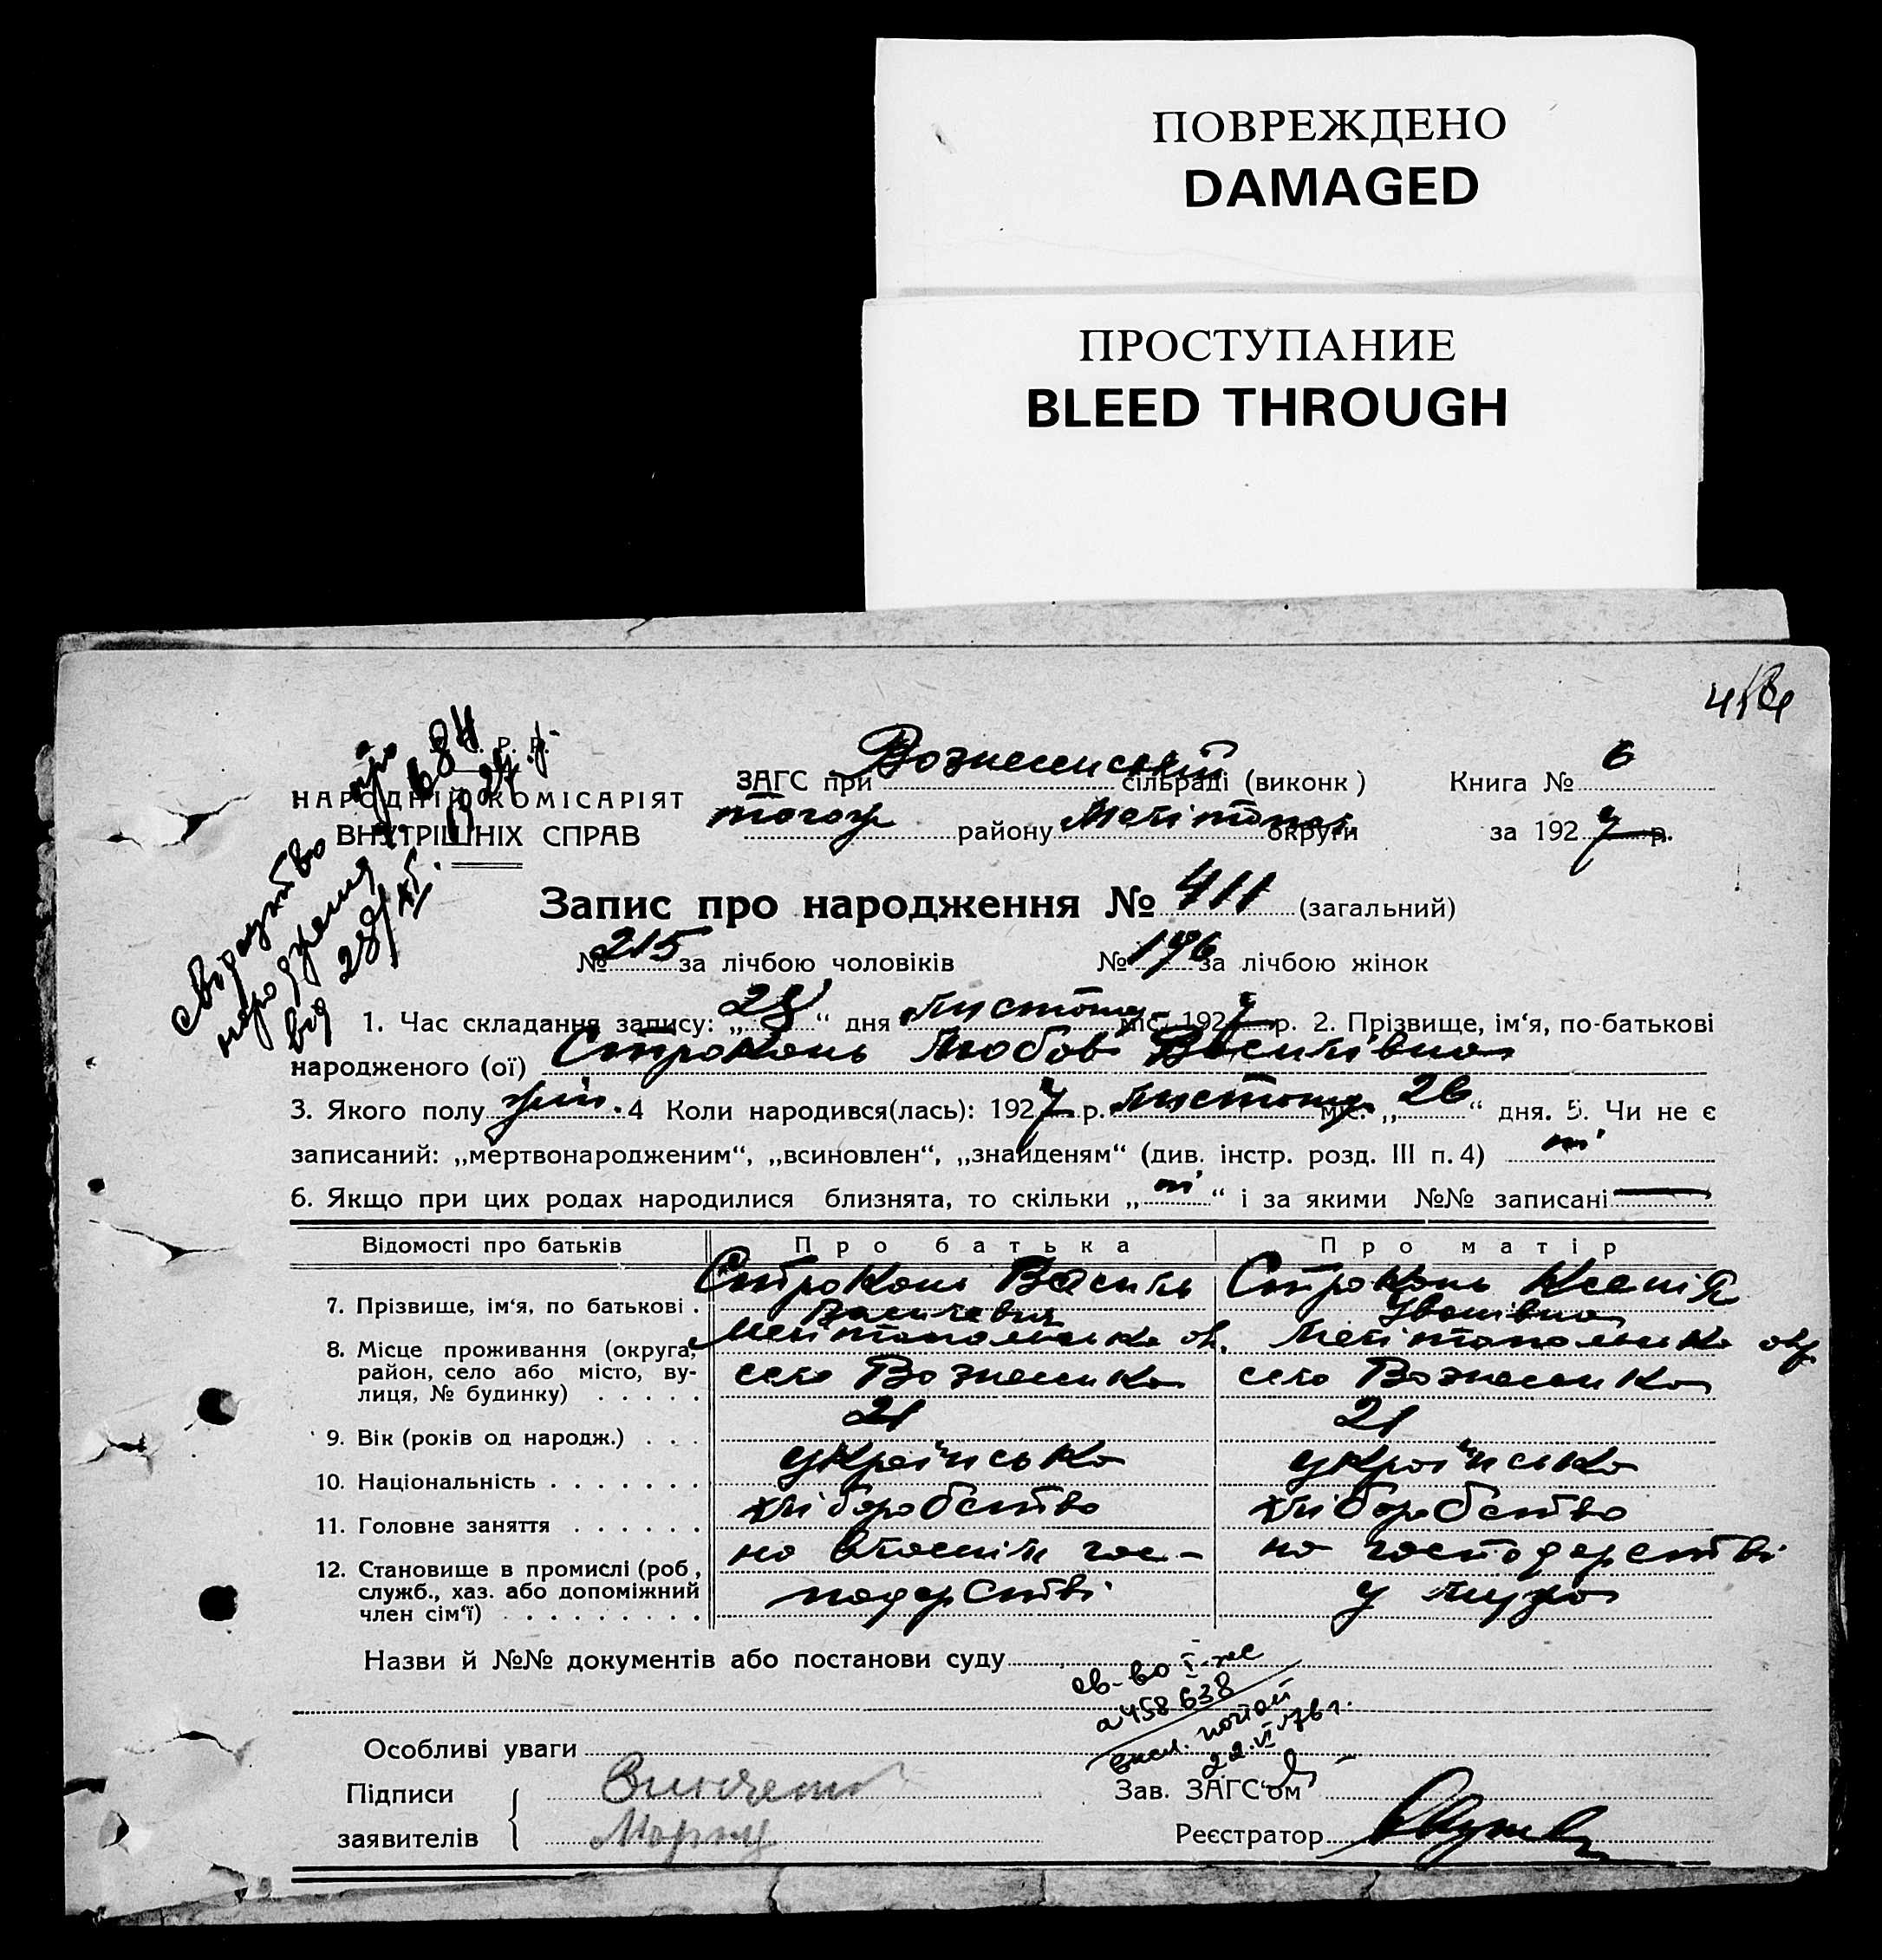 ПОВРЕЖДЕНО
DAMAGED
ПРОСТУПАНИЕ
BLEED THROUGH
Р. Р.
НАРОДНІЙ КОМІСАРІЯТ
ВНУТРІШНІХ СПРАВ
свідоцтво про
народження
від 28/XI
684
ЗАГС при Вознесенській сільраді (виконк) Книга № 6
району Мелітоп. округи за 1927 р.
Запис про народження № 411 (загальний)
№ 215 за лічбою чоловіків № 196 за лічбою жінок
1. Час складання запису: „28“ дня листопад міс. 1927 р. 2. Прізвище, ім‘я, по-батькові
народженого (ої) Строкань Любов Василівна
3. Якого полу жін. 4 Коли народився(лась): 1927 р. листопад міс. „26“ дня. 5. Чи не є
записаний: „мертвонародженим“, „всиновлен“, „знайденям“ (див. інстр. розд. III п. 4) ні
6. Якщо при цих родах народилися близнята, то скільки „ні“ і за якими №№ записані
Відомості про батьків Про батька Про матір
7. Прізвище, ім‘я, по батькові . Строкань Василь Васильевич Строкань Ксенія Іванівна
8. Місце проживання (округа, Мелітопольска ок. Мелітопольска окр.
район, село або місто, ву- село Вознесенка село Вознесенка
лиця, № будинку) . . . .
9. Вік (років од народж.) . . . 21 21
10. Національність . . . . . . . українська українська
11. Головне заняття . . . . . . хліборобство хліборобство
12. Становище в промислі (роб, на власнім гос- на господарстві
служб., хаз. або допоміжний подарстві у мужа
член сім‘ї) . . . . . . . . .
Назви й №№ документів або постанови суду
св-во I-ЖС
а 458638
22.VI.76 г.
Особливі уваги
Підписи
заявителів
Зав. ЗАГС‘ом
Реєстратор